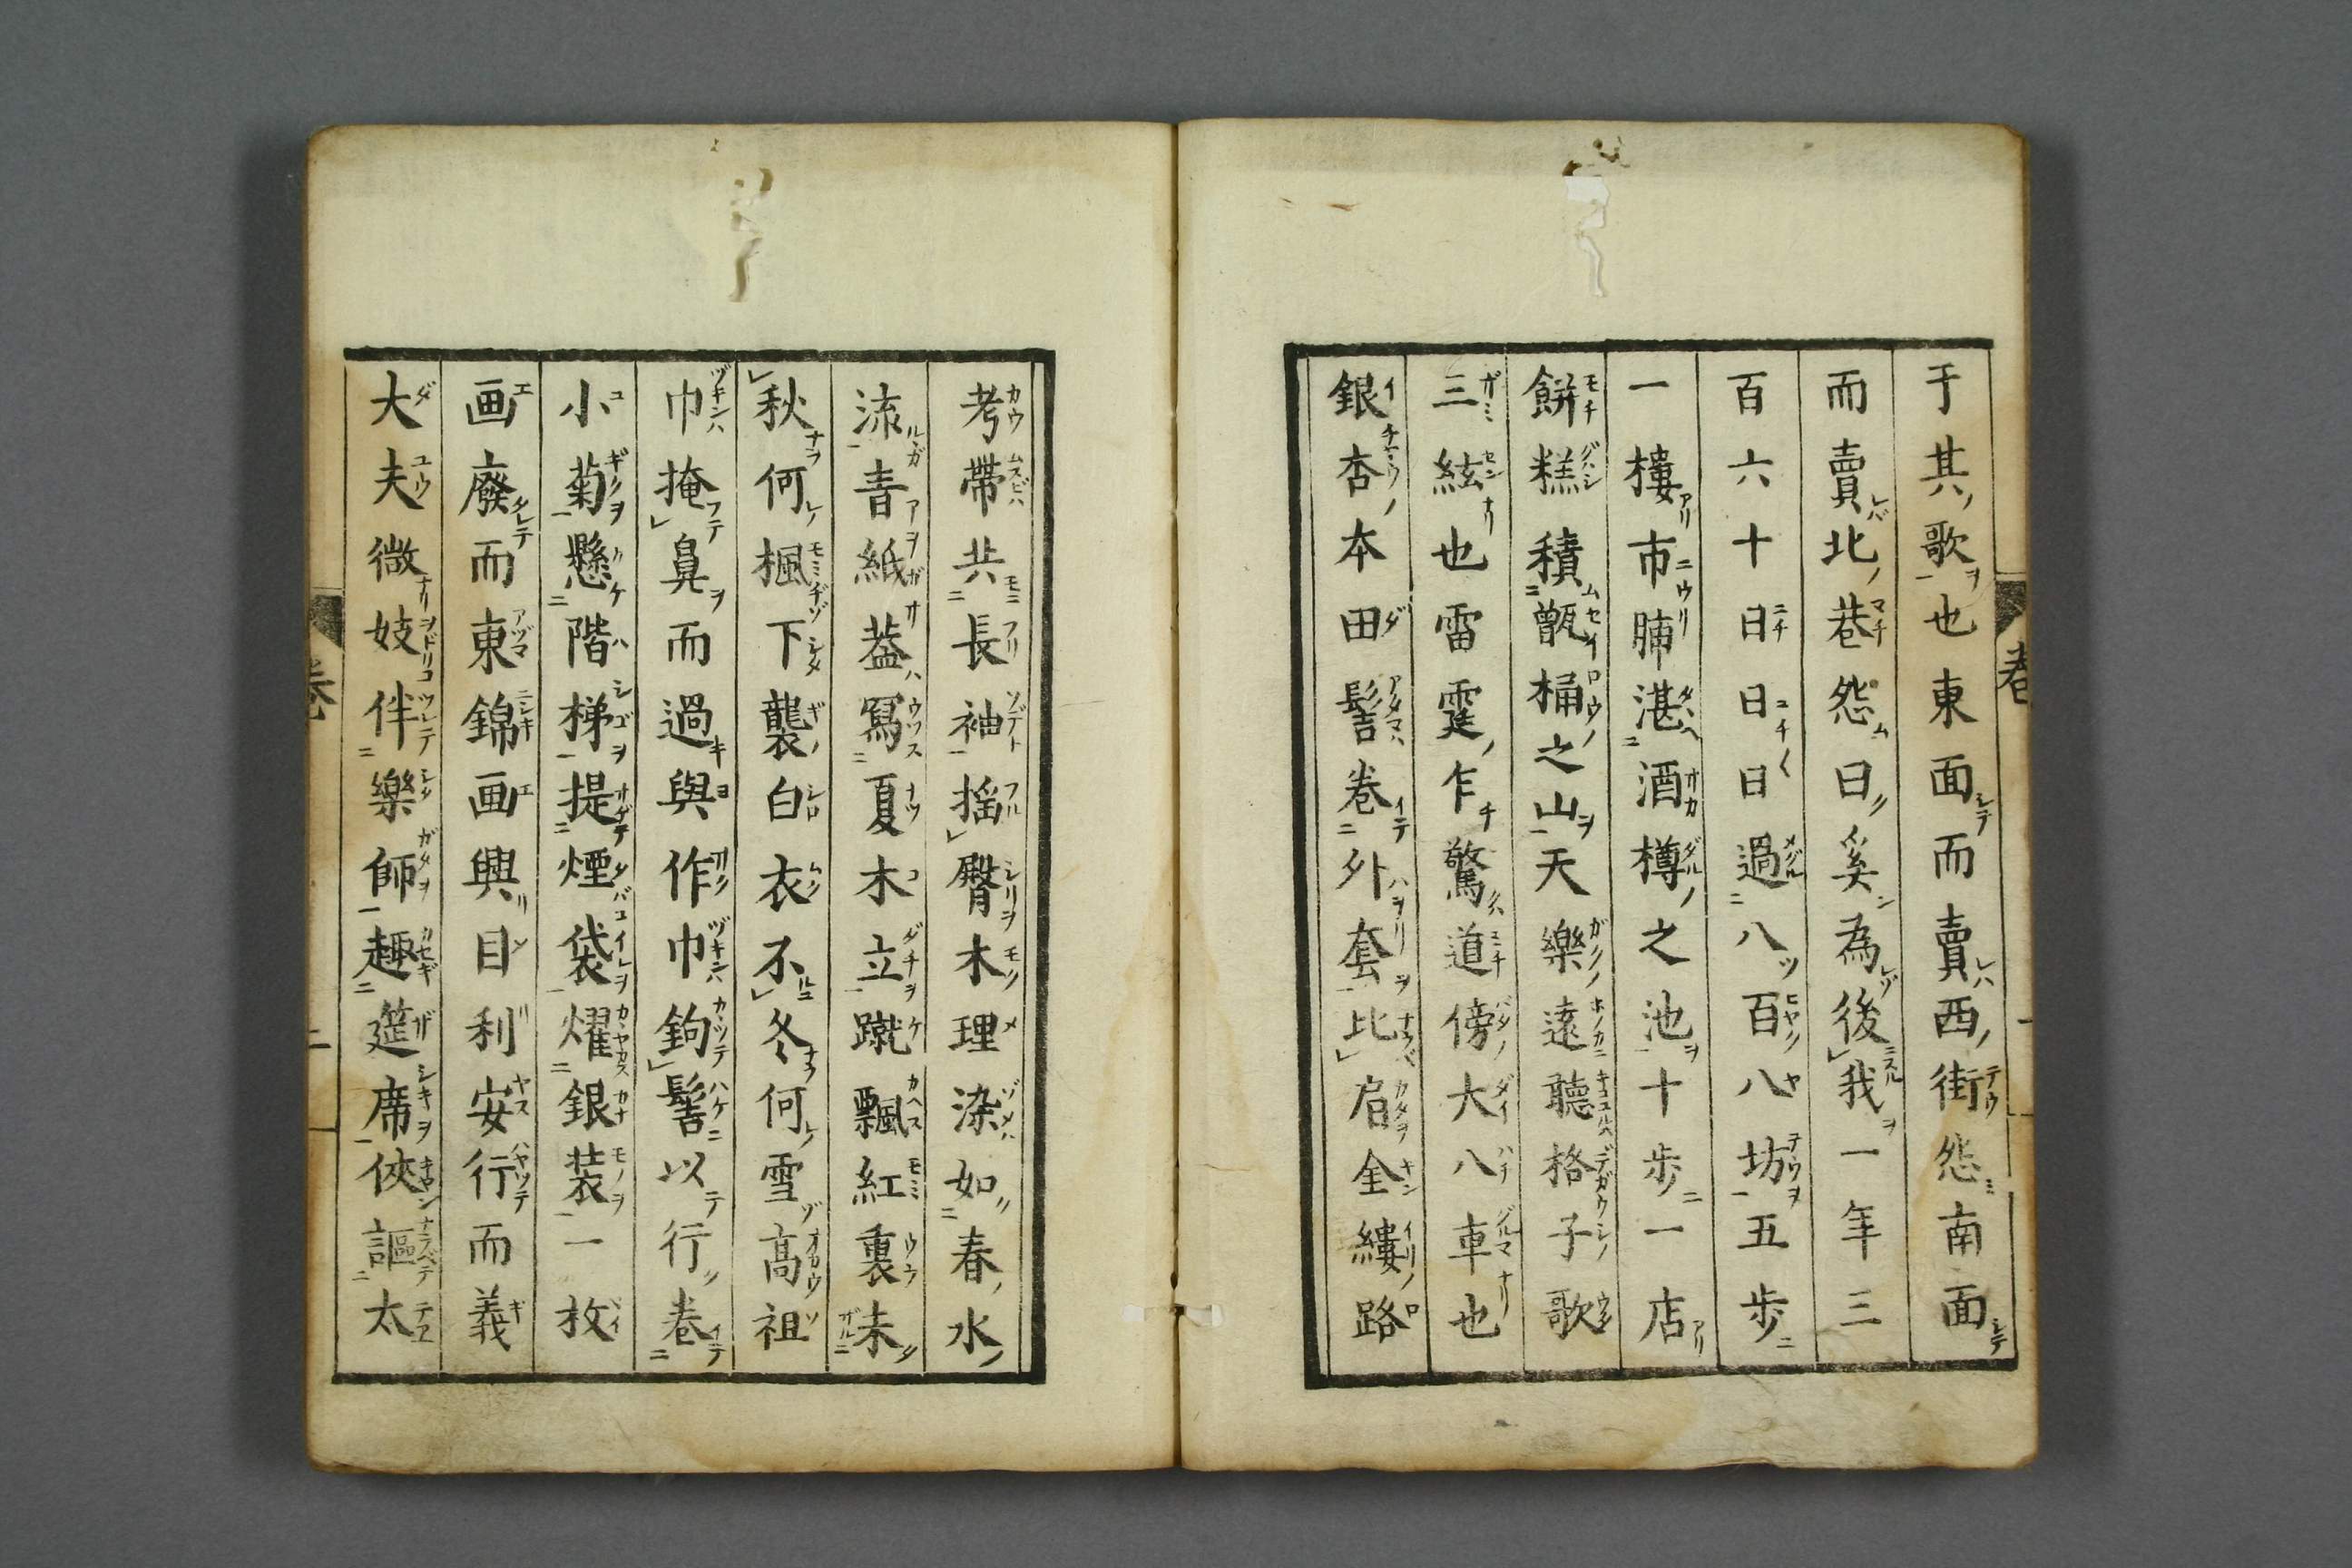 于其歌也東面而賣西街怨南面
而賣北巷怨曰奚為後我一年三
百六十日日日過八百八坊五歩
一樓市脯湛酒樽之池十歩一店
餅糕積甑桶之山天樂遠聽格子歌
三絃也雷霆乍驚道傍大八車也
銀杏本田髻巻外套比肩金縷路
考帶共長袖揺臀木理染如春水
流青紙葢冩夏木立蹴飄紅裏未
秋何楓下襲白衣不冬何雪高祖
巾掩鼻而過與作巾鉤髻以行巻
小菊懸階梯提煙袋燿銀装一枚
画廢而東錦画興目利安行而義
大夫微妓伴樂師趣筵席俠謳太